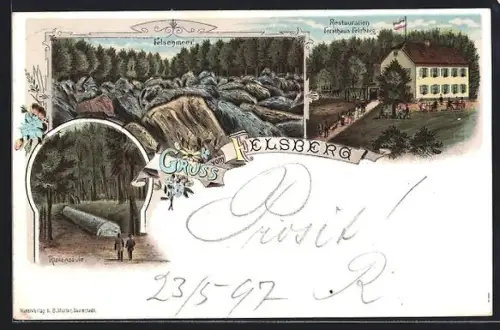 Felsenmeer
Restauration
Forsthaus Felsberg
Gruss vom Felsberg
Riesensäule
Prosit!
23/5 97 R.